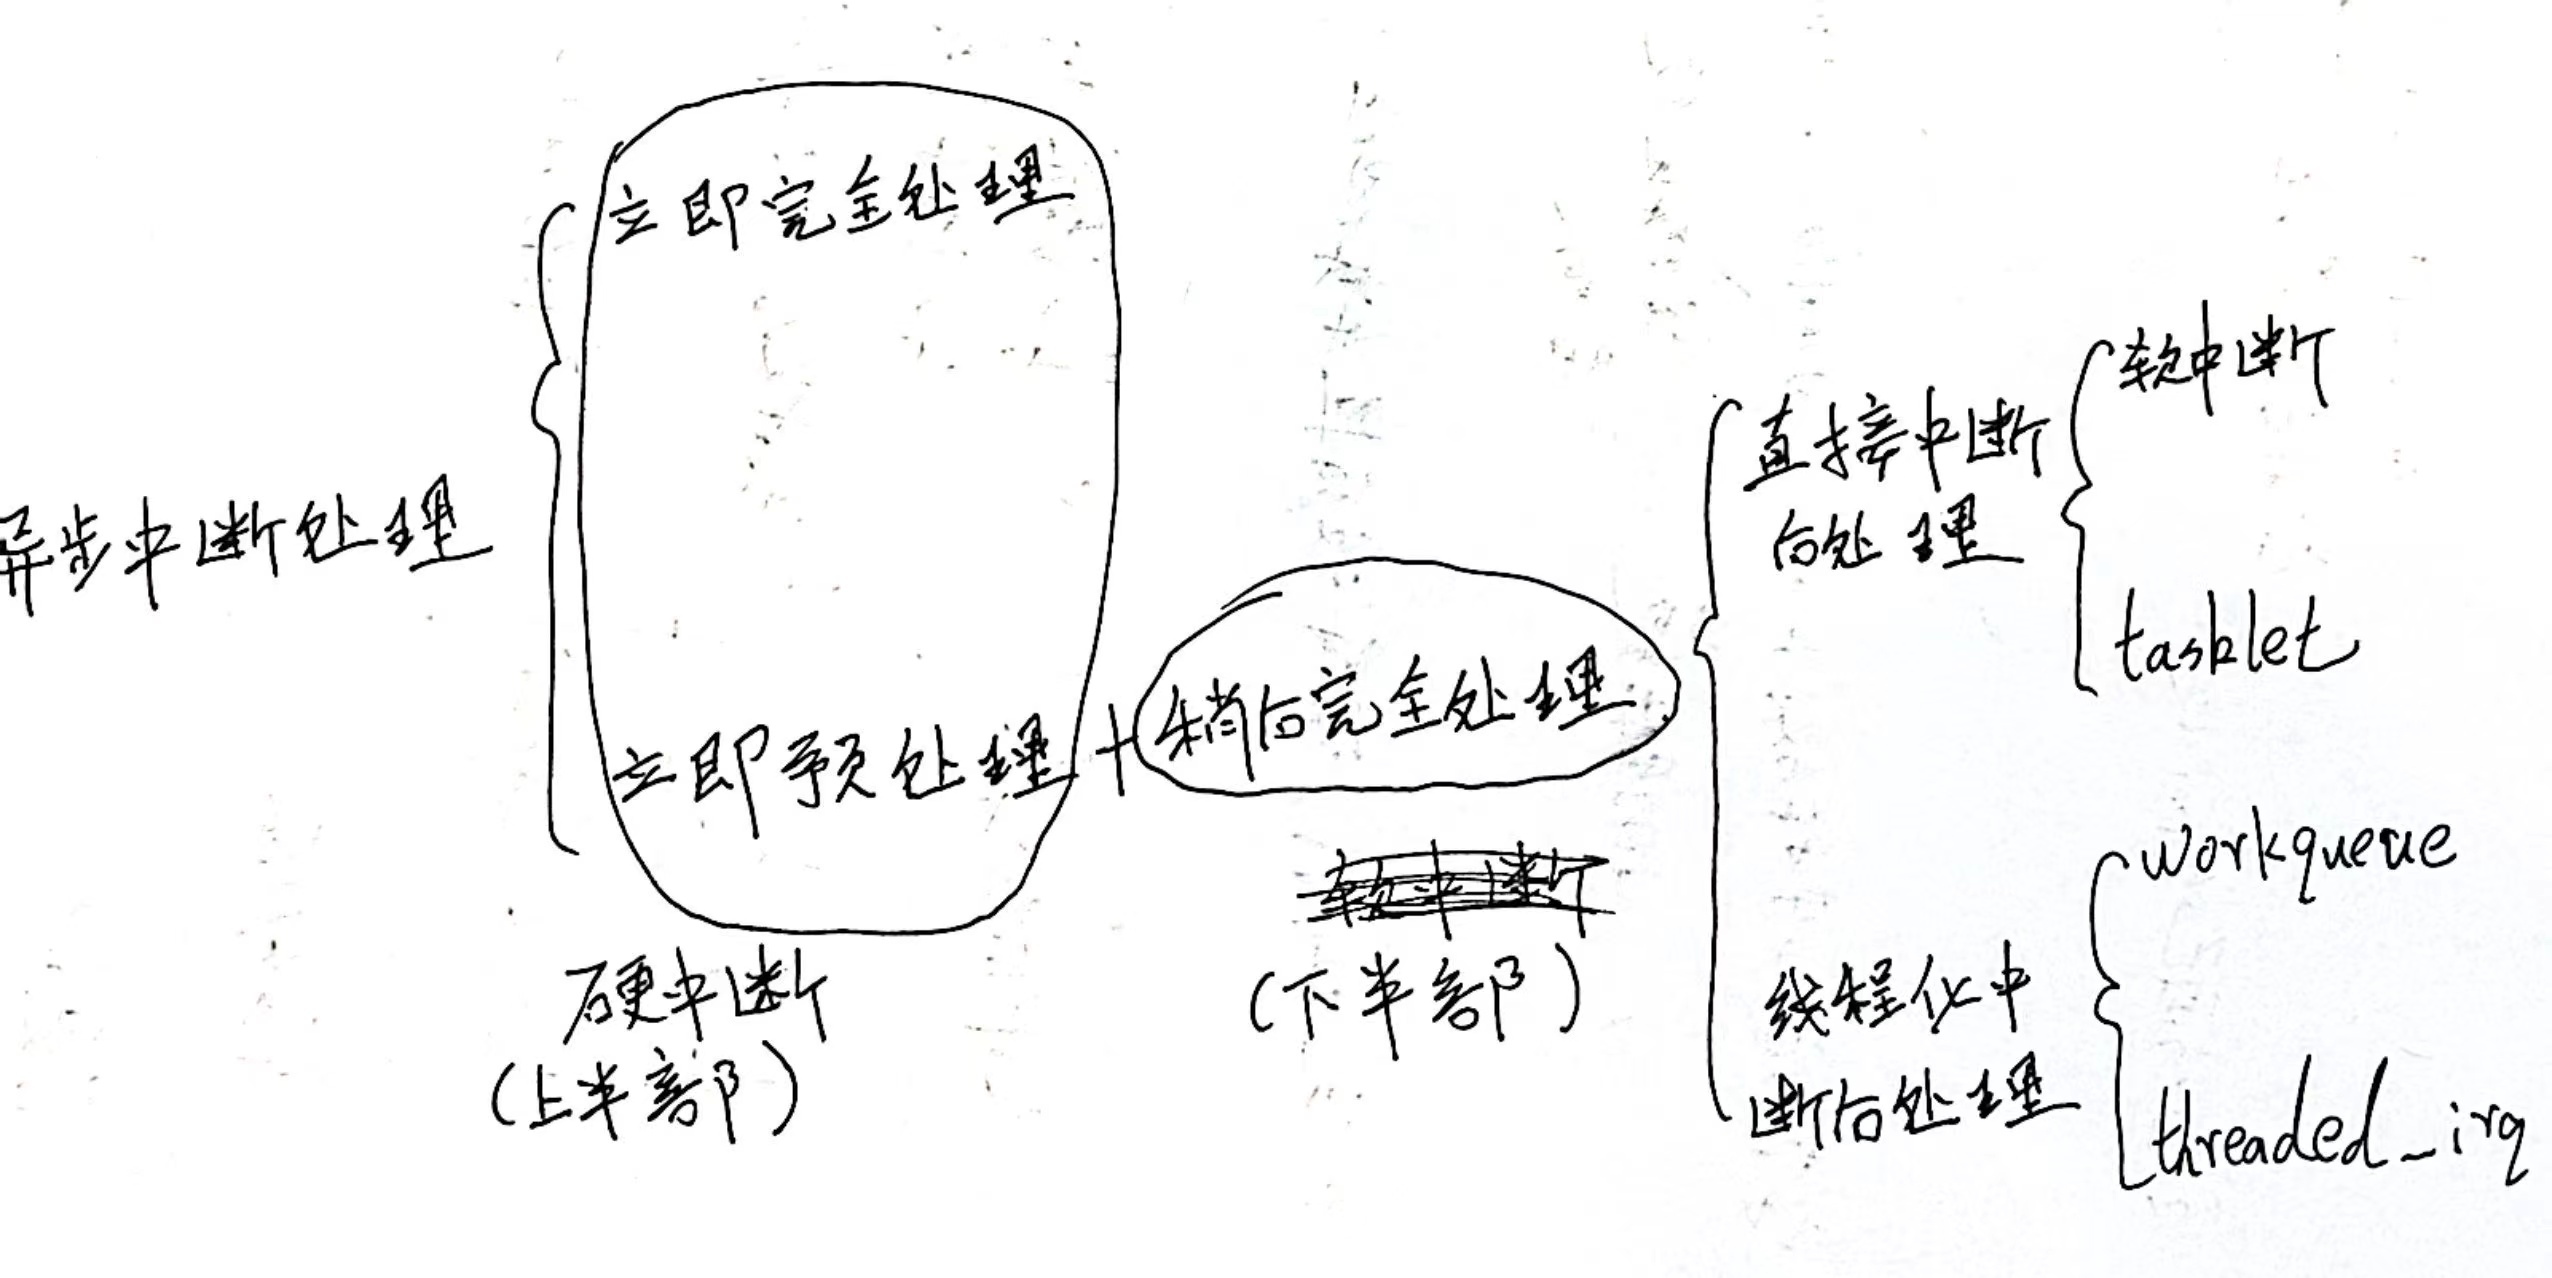 异步中断处理
立即完全处理
立即预处理 + 稍后完全处理
硬中断
(上半部)
软中断
(下半部)
直接中断
后处理
软中断
tasklet
线程化中
断后处理
workqueue
threaded_irq